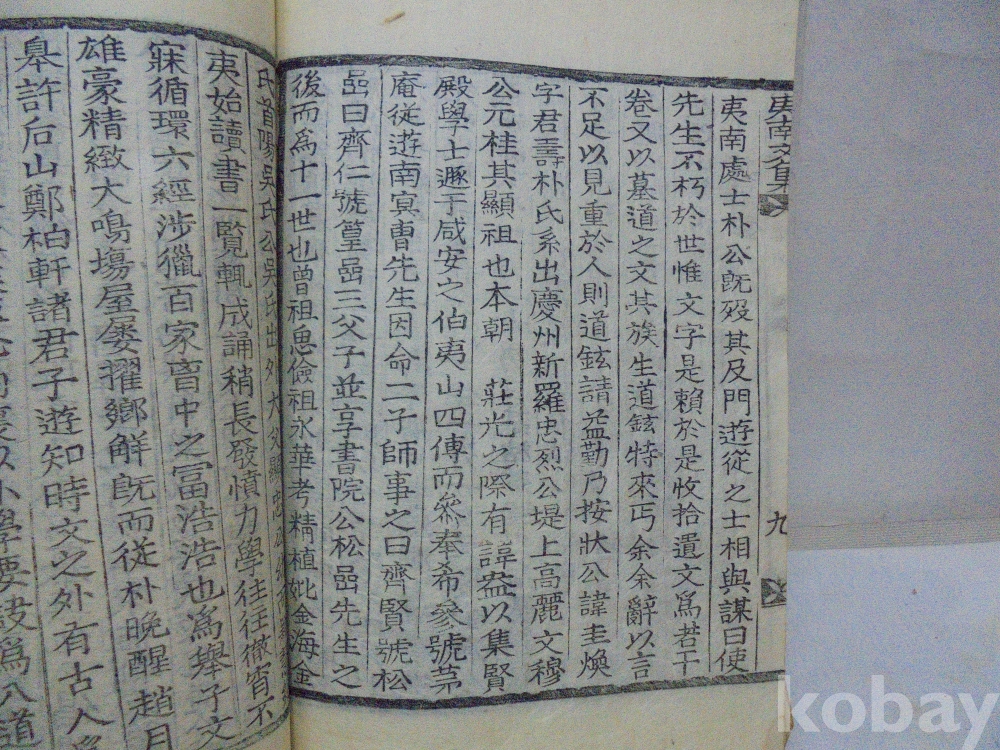 夷南文集
九
夷南處士朴公旣歿其及門遊從之士相與謀曰使
先生不朽於世惟文字是賴於是收拾遺文爲若干
卷又以墓道之文其族生道鉉特來丐余余辭以言
不足以見重於人則道鉉請益勤乃按狀公諱圭煥
字君壽朴氏系出慶州新羅忠烈公堤上高麗文穆
公元桂其顯祖也本朝 莊光之際有諱盎以集賢
殿學士遯于咸安之伯夷山四傳而參奉希參號茅
庵從遊南冥曺先生因命二子師事之曰齊賢號松
嵒曰齊仁號篁嵒三父子並享書院公松嵒先生之
後而爲十一世也曾祖思儉祖永華考精植妣金海金
氏首陽吳氏公吳氏出外大父
夷始讀書一覽輒成誦稍長發憤力學往往徹宵不
寐循環六經涉獵百家畜中之富浩浩也爲擧子文
雄豪精緻大鳴塲屋屢擢鄕解旣而從朴晩醒趙月
皐許后山鄭柏軒諸君子遊知時文之外有古人爲
小學要訣爲入道
kobay